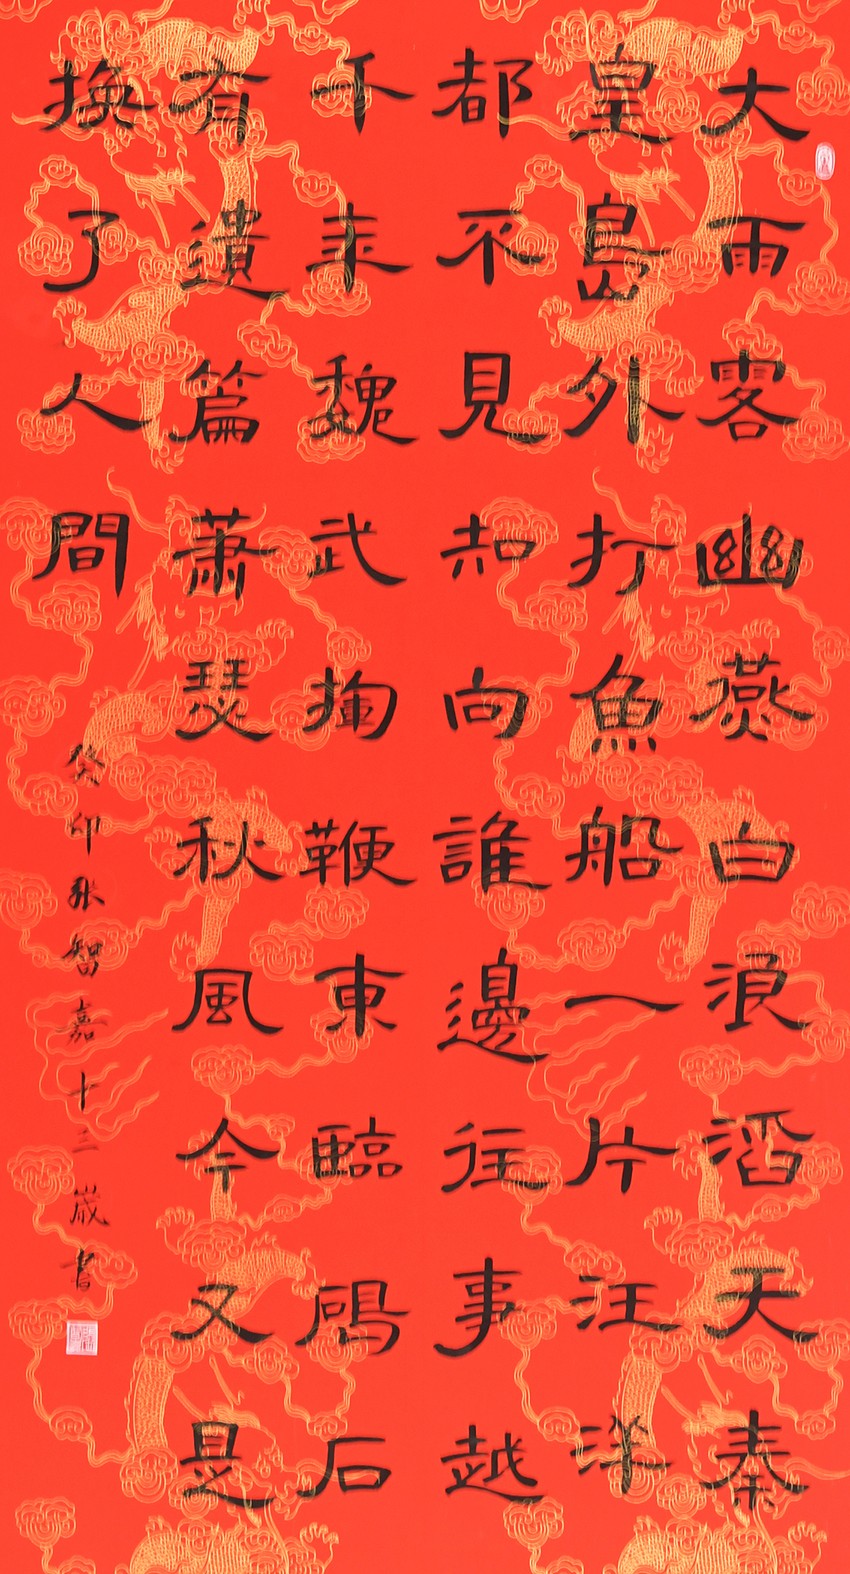 大雨落幽燕白浪滔天秦
皇島外打魚船一片汪洋
都不見知向誰邊往事越
千年魏武揮鞭東臨碣石
有遺篇蕭瑟秋風今又是
換了人間
癸卯张智嘉十三歲書